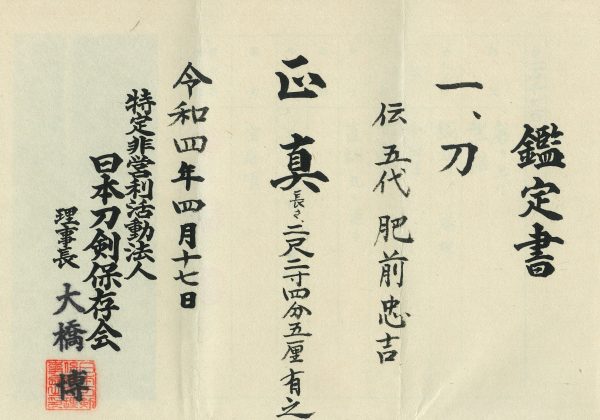 鑑定書
一、刀
伝 五代 肥前忠吉
正真
長さ、二尺二寸四分五厘有之
令和四年四月十七日
特定非営利活動法人
日本刀剣保存会
理事長 大橋 博